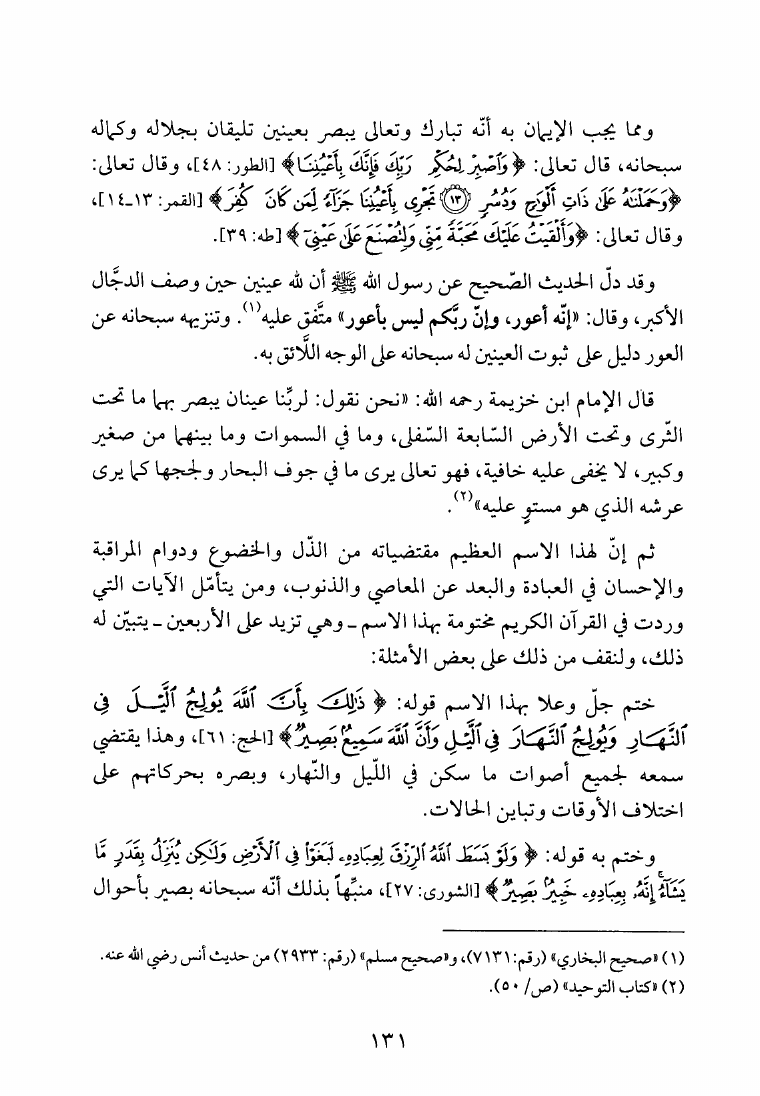 ومما يجب الإيمان به أنّه تبارك وتعالى يبصر بعينين تليقان بجلاله وكماله
سبحانه، قال تعالى: ﴿وَٱصْبِرْ لِحُكْمِ رَبِّكَ فَإِنَّكَ بِأَعْيُنِنَا﴾ [الطور: ٤٨]، وقال تعالى:
﴿وَحَمَلْنَٰهُ عَلَىٰ ذَاتِ أَلْوَٰحٍ وَدُسُرٍ ۝١٣ تَجْرِى بِأَعْيُنِنَا جَزَآءً لِّمَن كَانَ كُفِرَ﴾ [القمر: ١٣-١٤]،
وقال تعالى: ﴿وَأَلْقَيْتُ عَلَيْكَ مَحَبَّةً مِّنِّى وَلِتُصْنَعَ عَلَىٰ عَيْنِىٓ﴾ [طه: ٣٩].
وقد دلّ الحديث الصّحيح عن رسول الله ﷺ أن لله عينين حين وصف الدجَّال
الأكبر، وقال: «إنّه أعور، وإنّ ربَّكم ليس بأعور» متَّفق عليه(١). وتنزيهه سبحانه عن
العور دليل على ثبوت العينين له سبحانه على الوجه اللَّائق به.
قال الإمام ابن خزيمة رحمه الله: «نحن نقول: لربِّنا عينان يبصر بهما ما تحت
الثّرى وتحت الأرض السّابعة السّفلى، وما في السموات وما بينهما من صغير
وكبير، لا يخفى عليه خافية، فهو تعالى يرى ما في جوف البحار ولججها كما يرى
عرشه الذي هو مستوٍ عليه»(٢).
ثم إنّ لهذا الاسم العظيم مقتضياته من الذّل والخضوع ودوام المراقبة
والإحسان في العبادة والبعد عن المعاصي والذنوب، ومن يتأمّل الآيات التي
وردت في القرآن الكريم مختومة بهذا الاسم - وهي تزيد على الأربعين - يتبيّن له
ذلك، ولنقف من ذلك على بعض الأمثلة:
ختم جلّ وعلا بهذا الاسم قوله: ﴿ذَٰلِكَ بِأَنَّ ٱللَّهَ يُولِجُ ٱلَّيْلَ فِى
ٱلنَّهَارِ وَيُولِجُ ٱلنَّهَارَ فِى ٱلَّيْلِ وَأَنَّ ٱللَّهَ سَمِيعٌۢ بَصِيرٌ﴾ [الحج: ٦١]، وهذا يقتضي
سمعه لجميع أصوات ما سكن في اللّيل والنّهار، وبصره بحركاتهم على
اختلاف الأوقات وتباين الحالات.
وختم به قوله: ﴿وَلَوْ بَسَطَ ٱللَّهُ ٱلرِّزْقَ لِعِبَادِهِۦ لَبَغَوْا۟ فِى ٱلْأَرْضِ وَلَٰكِن يُنَزِّلُ بِقَدَرٍ مَّا
يَشَآءُ ۚ إِنَّهُۥ بِعِبَادِهِۦ خَبِيرٌۢ بَصِيرٌ﴾ [الشورى: ٢٧]، منبِّهاً بذلك أنّه سبحانه بصير بأحوال
(١) «صحيح البخاري» (رقم: ٧١٣١)، و«صحيح مسلم» (رقم: ٢٩٣٣) من حديث أنس رضي الله عنه.
(٢) «كتاب التوحيد» (ص/ ٥٠).
١٣١